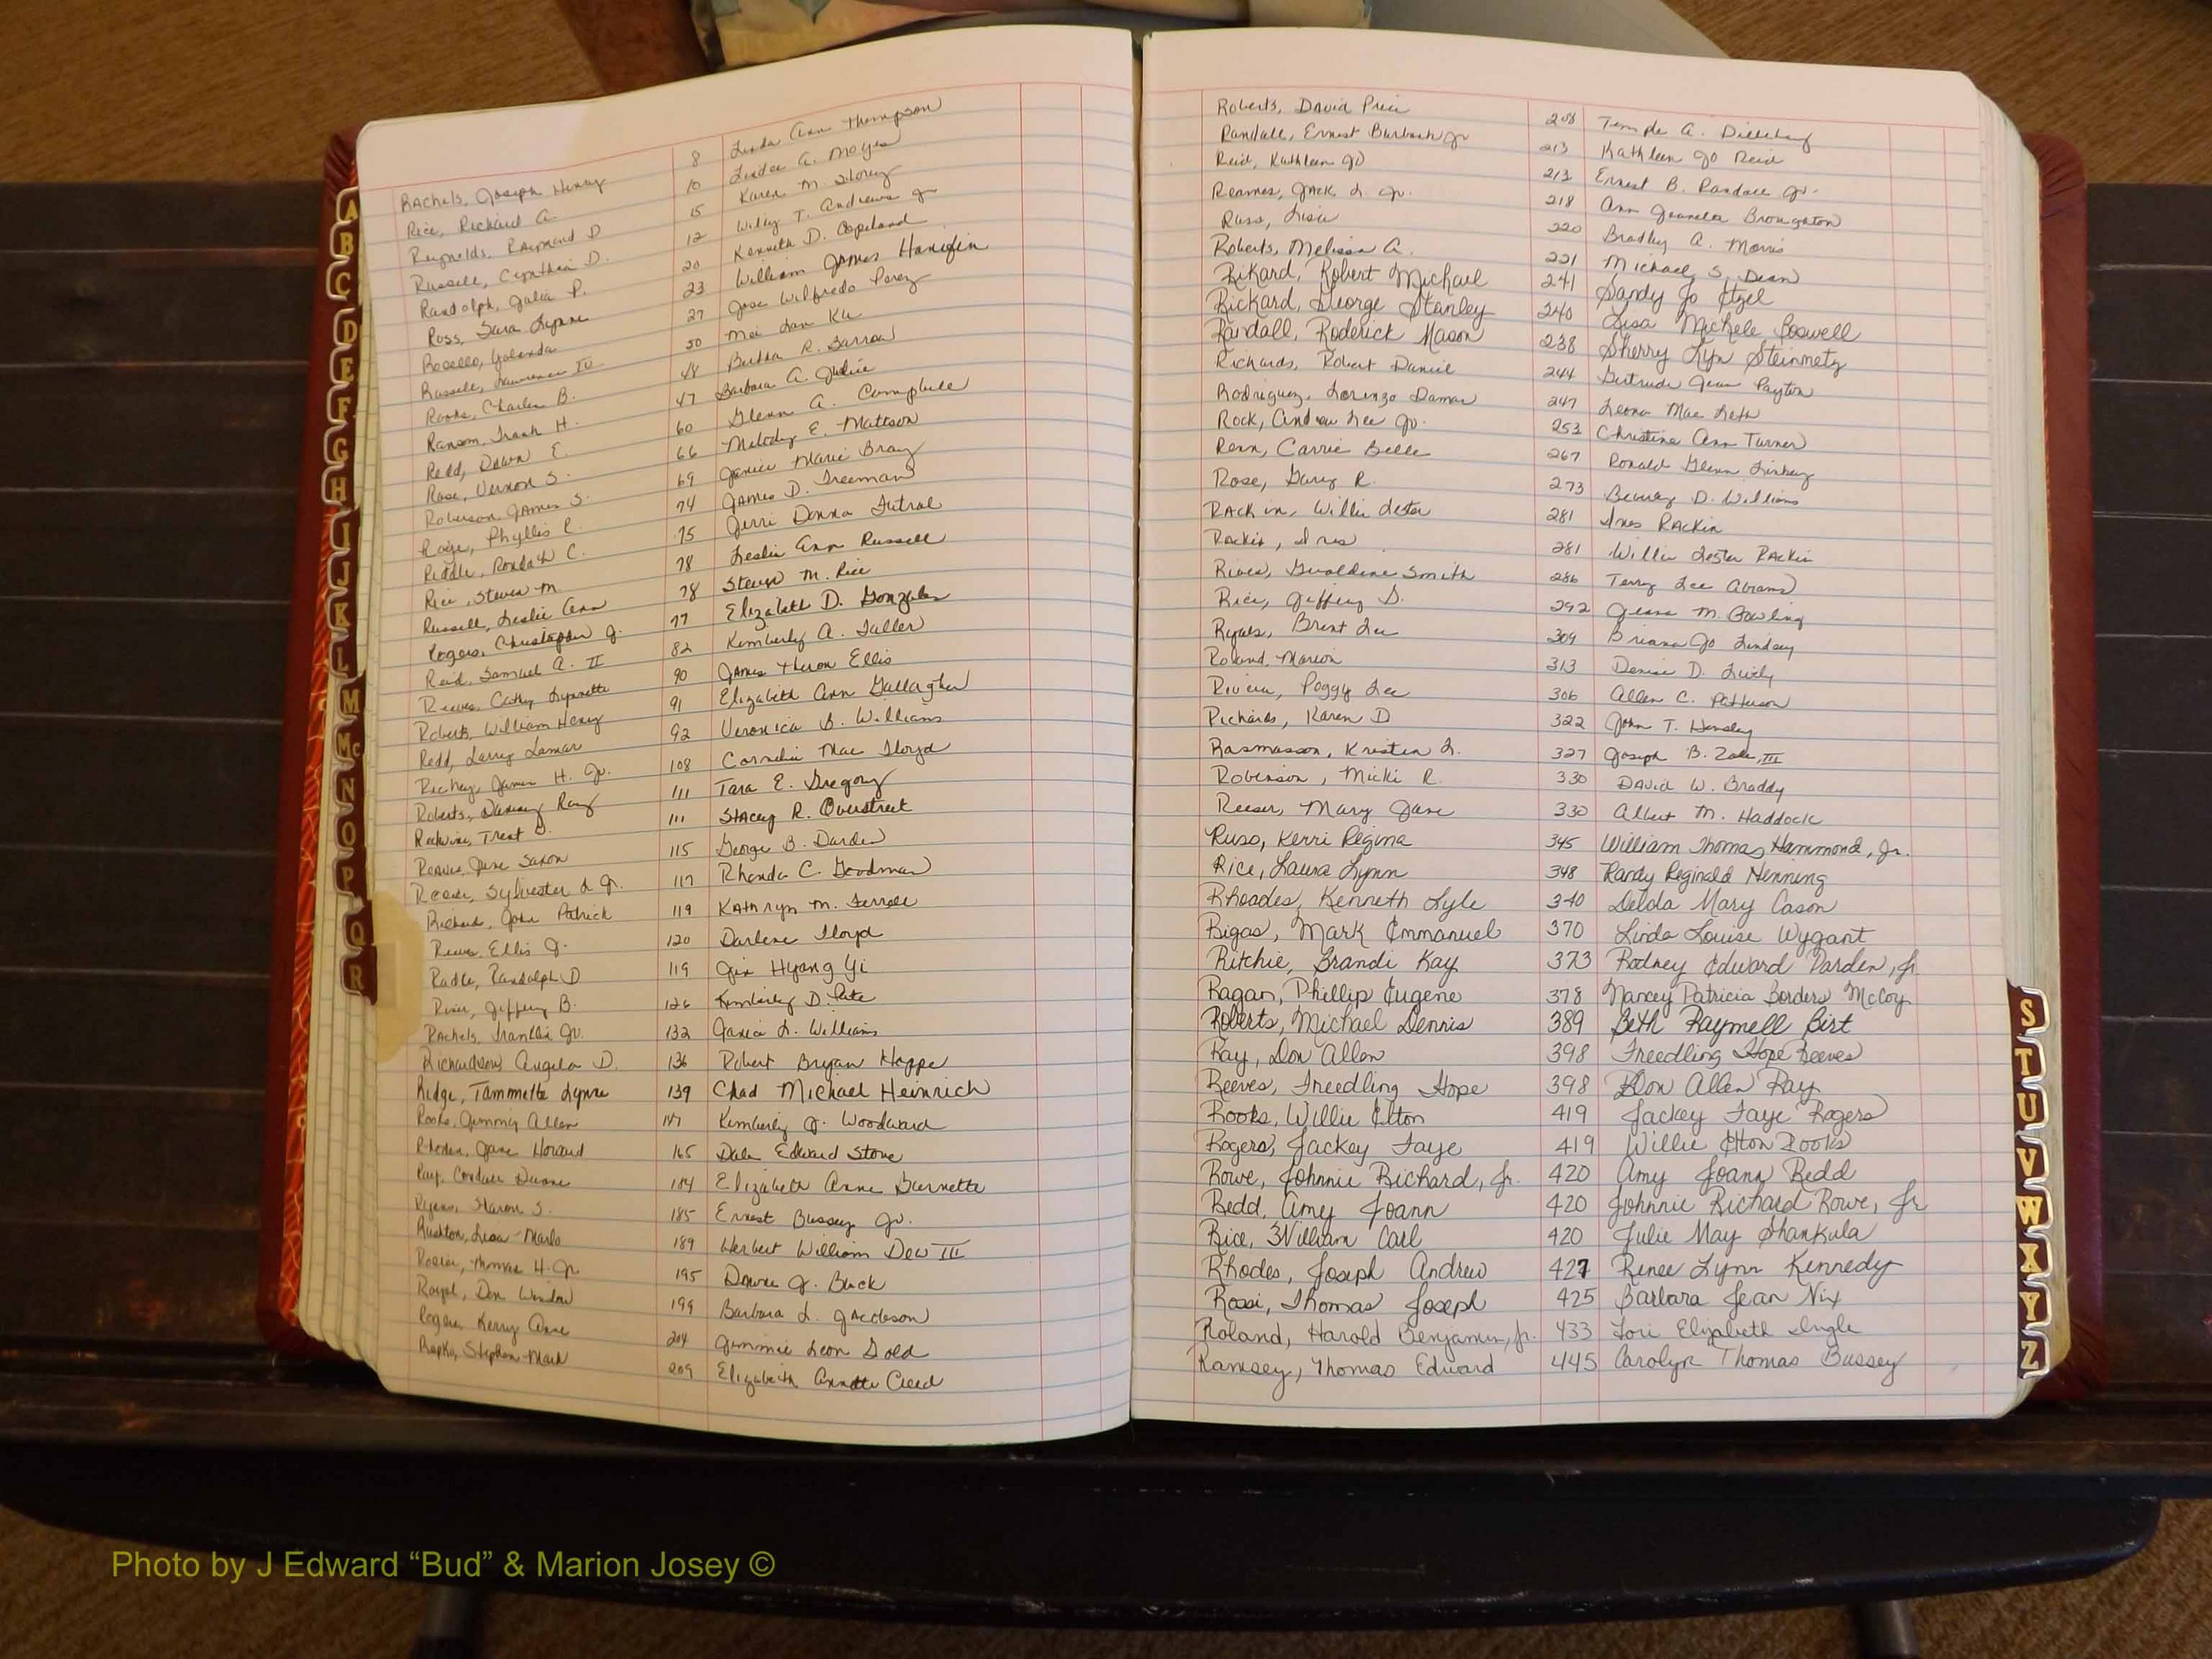 Rachels, Joseph Henry 8 Linda Ann Thompson
Rice, Richard A. 10 Linda A. Moyes
Reynolds, Raymond D 15 Karen M. Storey
Russell, Cynthia D. 12 Wiley T. Andrews Jr
Randolph, Julia P. 20 Kenneth D. Copeland
Ross, Sara Lynne 23 William James Hanifin
Rosello, Yolanda 27 Jose Wilfredo Perez
Russell, Lawrence IV 50 Mei Lan Ku
Rooks, Charles B. 48 Bertha R. Barrow
Ransom, Frank H. 47 Barbara A. Julie
Redd, Dawn E. 60 Glenn A. Campbell
Rose, Vernon S. 66 Melody E. Mattson
Roberson, James S. 69 Janice Marie Bray
Phyllis R. 74 James D. Freeman
Riddle, Ronda C. 75 Jerri Donna Futral
Rice, Steven M. 78 Leslie Ann Russell
Russell, Leslie Ann 78 Steven M. Rice
Rogers, Christopher J. 77 Elizabeth D. Gonzales
Reid, Samuel A. II 82 Kimberly A. Fuller
Reeves, Cathy Lynnette 90 James Theron Ellis
Roberts, William Henry 91 Elizabeth Ann Gallagher
Redd, Larry Lamar 92 Veronica B. Williams
Richey, James H. Jr. 108 Cornelia Mae Floyd
Roberts, Danny Ray 111 Tara E. Gregory
Redwine, Trent D. 111 Stacey R. Overstreet
Reaves, June Saxon 115 George B. Darden
Sylvester L Jr. 117 Rhonda C. Goodman
Richard, John Patrick 119 Kathryn M. Terrell
Reeves, Ellis J. 120 Darlene Floyd
Radle, Randolph D 119 Jin Hyang Yi
River, Jeffery B. 126 Kimberly D. Pate
Rachels, Franklin Jr. 132 Janice L. Williams
Richardson, Angela D. 136 Robert Bryan Hoppe
Ridge, Tammette Lynne 139 Chad Michael Heinrich
Rooks, Jimmy Allen 147 Kimberly J. Woodward
Rhoden, Jane Howard 165 Dale Edward Stone
Ray, Duane 184 Elizabeth Anne Burnette
Sharon S. 185 Ernest Bussey Jr.
Rushton, Lisa Marlo 189 Herbert William Dew III
Thomas H. Jr. 195 J. Buck
Royal, Don Windon 199 Barbara L. Jacobson
Rogers, Kerry Anne 204 Jimmie Leon Dold
Repko, Stephen Mark 209 Elizabeth Annette Creed
Roberts, David Price 208 Temple A. Dillehay
Randall, Ernest Burbach Jr 213 Kathleen Jo Reid
Reid, Kathleen Jo 213 Ernest B. Randall Jr.
Reames, Jack L. Jr. 218 Ann Juanela Broughton
Russ, Lisa 220 Bradley A. Morris
Roberts, Melissa A. 221 Michael S. Dean
Rikard, Robert Michael 241 Sandy Jo Etzel
Rickard, George Stanley 240 Lisa Michele Boswell
Randall, Roderick Mason 238 Sherry Lyn Steinmetz
Richards, Robert Daniel 244 Gertrude Jean Payton
Rodriguez, Lorenzo Damar 247 Leona Mae Leth
Rock, Andrew Lee Jr. 253 Christine Ann Turner
Renn, Carrie Belle 267 Ronald Glenn Linkey
Rose, Gary R. 273 Beverly D. Williams
Rackin, Willie Lester 281 Ines Rackin
Rackin, Ines 281 Willie Lester Rackin
Rives, Geraldine Smith 286 Terry Lee Abrams
Rice, Jeffrey D. 292 M. Bowling
Ryals, Brent Lee 309 Briana Jo Lindsey
Roland, Marion 313 Denise D. Lively
Rivera, Peggy Lee 306 Allen C. Patterson
Richards, Karen D 322 John T. Hensley
Rasmasson, Kristen L. 327 Joseph B. Zale, III
Robinson, Micki R. 330 David W. Braddy
Reeser, Mary Jane 330 Albert M. Haddock
Ruso, Kerri Regina 345 William Thomas Hammond, Jr.
Rice, Laura Lynn 348 Randy Reginald Henning
Rhoades, Kenneth Lyle 340 Delda Mary Cason
Rigas, Mark Emmanuel 370 Linda Louise Wygant
Ritchie, Brandi Kay 373 Rodney Edward Darden, Jr.
Ragan, Phillip Eugene 378 Nancey Patricia Borders McCoy
Roberts, Michael Dennis 389 Beth Raymell Birt
Ray, Don Allen 398 Freedling Hope Reeves
Reeves, Freedling Hope 398 Don Allen Ray
Rooks, Willie Elton 419 Jackey Faye Rogers
Rogers, Jackey Faye 419 Willie Elton Rooks
Rowe, Johnnie Richard, Jr. 420 Amy Joann Redd
Redd, Amy Joann 420 Johnnie Richard Rowe, Jr
Rice, William Carl 420 Julie May Shankula
Rhodes, Joseph Andrew 427 Renee Lynn Kennedy
Rossi, Thomas Joseph 425 Barbara Jean Nix
Roland, Harold Benjamin, Jr. 433 Lori Elizabeth Ingle
Ramsey, Thomas Edward 445 Carolyn Thomas Bussey
A
B
C
D
E
F
G
H
I
J
K
L
M
Mc
N
O
P
Q
R
S
T
U
V
W
X
Y
Z
Photo by J Edward “Bud” & Marion Josey ©